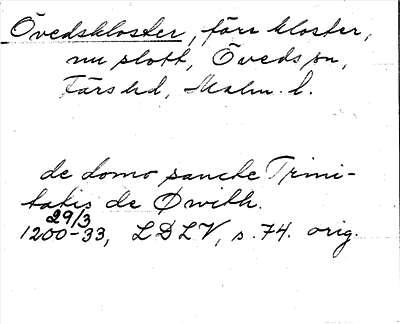 Övedskloster, förr kloster,
nu slott, Öveds sn,
Färs hd, Malm. l.
de domo sancte Trini-
tatis de Øwith.
29/3
1200-33, LDLV, s. 74. orig.